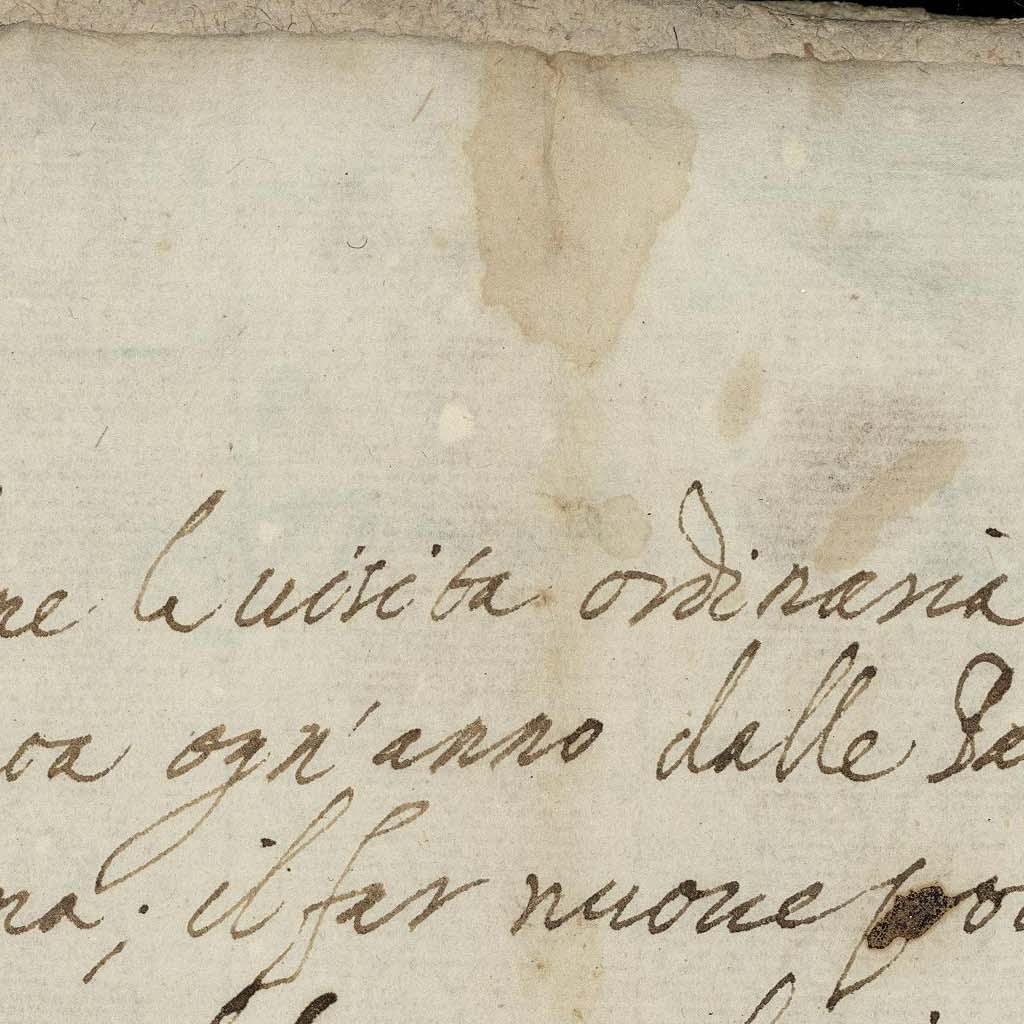 ne la uisita ordinaria
oa ogn'anno dalle Pa
na; il far nuoue po